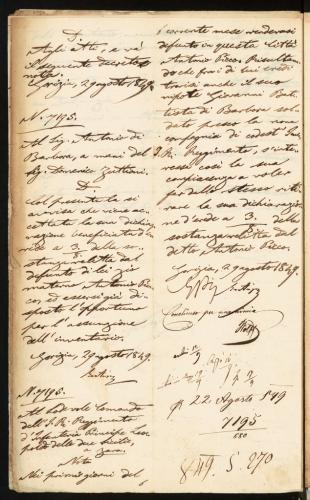 D.
Agli Atti, e va
il seguente decreto
nota.
Gorizia, 29 agosto 1849.
N. 7195.
Al Sig. Antonio di
Barbora, a mani del
Sig. Domenico
D.
Col presente la si
avvisa che viene ac-
cettata la sua dichia-
razione beneficiata d'e-
rede a 3. della so-
stanza relitta dal
defunto di lei zio
materno Antonio Pic-
co, ed essersi già di-
sposto l'opportuno
per l'assunzione
dell'inventario.
Gorizia, 29 agosto 1849.
N. 7195.
Al Lodevole Comando
dell'I. R. Reggimento
d'Infanteria Principe Leo-
poldo delle due Sicilie,
a Zara.
Nota
Nei primi giorni del
corrente mese rendevasi
defunto in questa Città
Antonio Picco. Risultan-
do che fra i di lui eredi
trovasi anche il suo
nipote Giovanni Bat-
tista di Barbora sol-
dato presso la nona
compagnia di codest'
I. R. Reggimento, s'inte-
ressa così la sua
compiacenza a voler
far dallo stesso riti-
rare la sua dichiarazio-
ne d'erede a 3. della
sostanza relitta dal
detto Antonio Picco.
Gorizia, 29 agosto 1849.
22 Agosto 849
7195
849 S. 270